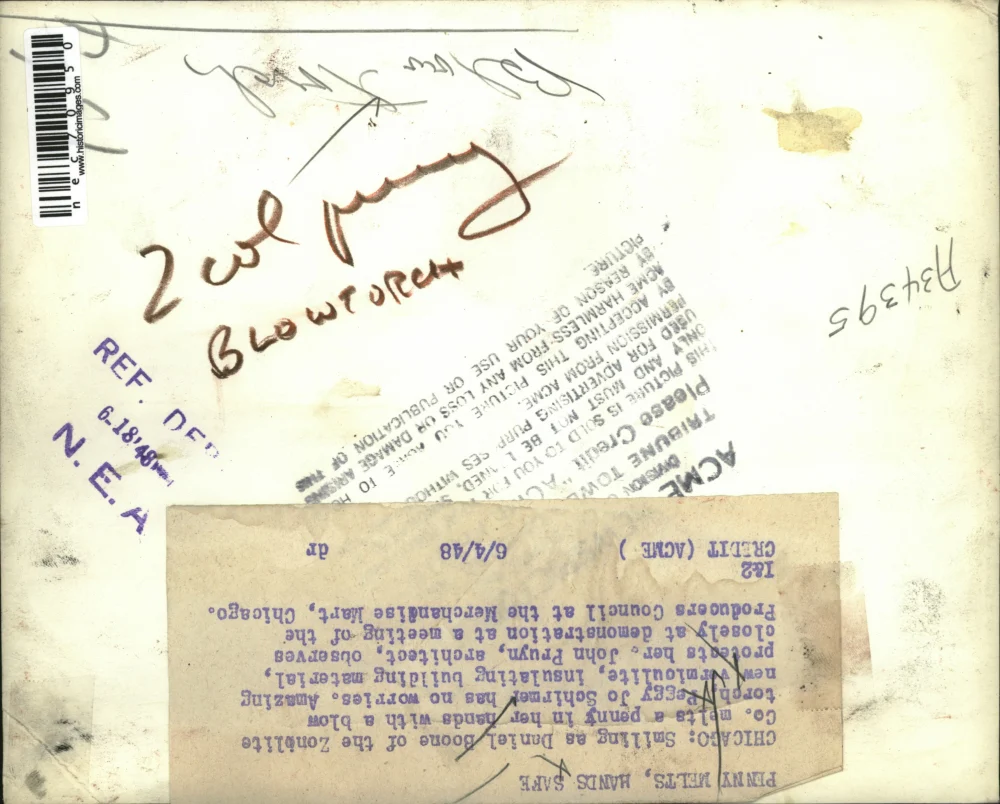 Blow Torch
necy0950
www.historicimages.com
2 col penny
BLOWTORCH
A34395
REF. DEP
6-18-48
N. E. A
ACME
DIVISION
TRIBUNE TOWE
Please Credit "AC
THIS PICTURE IS SOLD TO YOU FOR
ONLY AND MUST NOT BE L NED, S
USED FOR ADVERTISING PURP SES WITHOU
PERMISSION FROM ACME.
BY ACCEPTING THIS PICTURE YOU AGREE TO HO
ACME HARMLESS FROM ANY LOSS OR DAMAGE ARISING
BY REASON OF YOUR USE OR PUBLICATION OF THIS
PICTURE
PENNY MELTS, HANDS SAFE
CHICAGO: Smiling as Daniel Boone of the Zonolite
Co. melts a penny in her hands with a blow
torch, Peggy Jo Schirmer has no worries. Amazing
new vermiculite, insulating building material,
protects her. John Pruyn, architect, observes
closely at demonstration at a meeting of the
Producers Council at the Merchandise Mart, Chicago.
1&2
CREDIT (ACME ) 6/4/48 dr